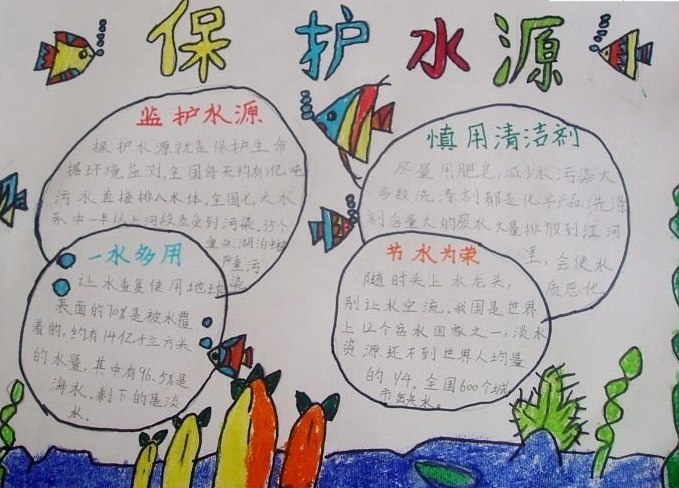 保护水源
监护水源
保护水源就是保护生命
据环境监测,全国每天约有1亿吨
污水直接排入水体。全国七大水
系中一半以上河段水质受到污染。35个
重点湖泊中被
严重污
染
慎用清洁剂
尽量用肥皂,减少水污染大
多数洗涤剂都是化学产品,洗涤
剂含量大的废水大量排放到江河
里,会使水
质恶化
一水多用
让水重复使用地球
表面的70%是被水覆
着的,约有14亿千立方米
的水量,其中有96.5%是
海水。剩下的是淡
水。
节水为荣
随时关上水龙头,
别让水空流。我国是世界
上12个贫水国家之一,淡水
资源还不到世界人均量
的1/4。全国600个城
市缺水。